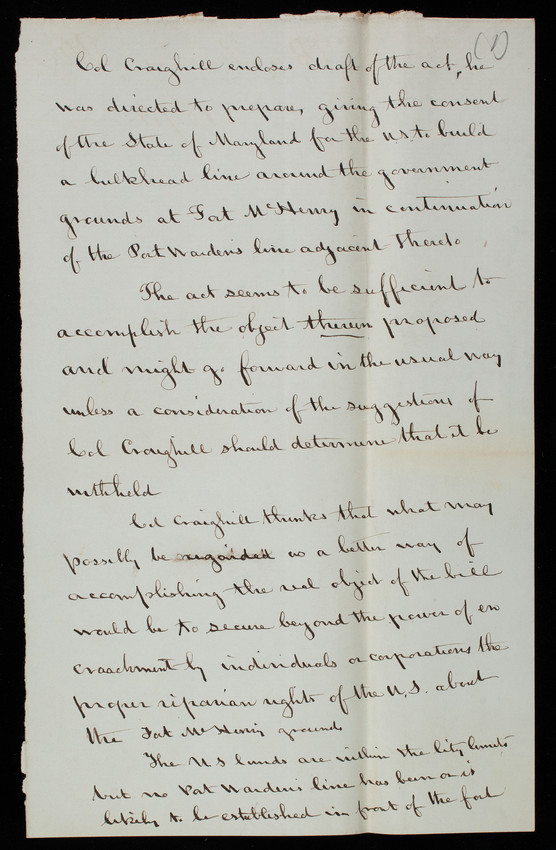 (1)
Col Craighill encloses draft of the act, he
was directed to prepare, giving the consent
of the State of Maryland for the U.S. to build
a bulkhead line around the government
grounds at Fort McHenry in continuation
of the Port Wardens line adjacent thereto
The act seems to be sufficient to
accomplish the object therein proposed
and might go forward in the usual way
unless a consideration of the suggestions of
Col Craighill should determine that it be
withheld
Col Craighill thinks that what may
possibly be regarded as a better way of
accomplishing the real object of the bill
would be to secure beyond the power of en
croachment by individuals or corporations the
proper riparian rights of the U.S. about
the Fort McHenry grounds
The US lands are within the city limits
but no Port Warden's line has been or is
likely to be established in front of the fort